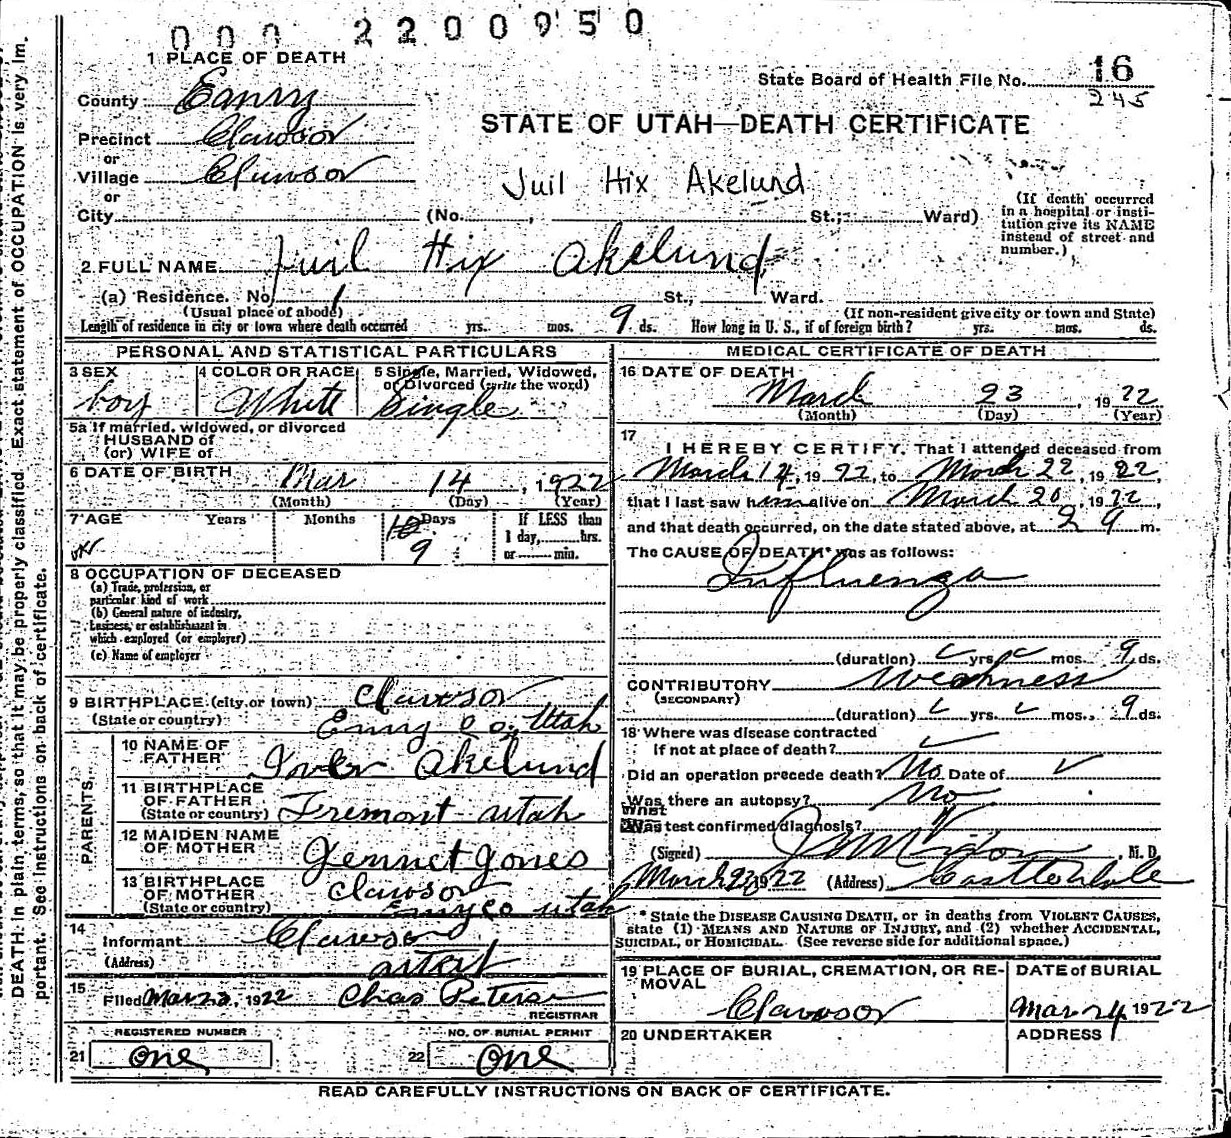 000 2200950
1 PLACE OF DEATH
State Board of Health File No. 16
245
County Emry
STATE OF UTAH—DEATH CERTIFICATE
Precinct Clawson
or
Village Clawson
Juil Hix Akelund
or
City (No. , St.; Ward)
(If death occurred
in a hospital or insti-
tution give its NAME
instead of street and
number.)
2 FULL NAME Juil Hix Akelund
(a) Residence. No. St., Ward.
(Usual place of abode) (If non-resident give city or town and State)
Length of residence in city or town where death occurred yrs. mos. 9 ds. How long in U. S., if of foreign birth? yrs. mos. ds.
PERSONAL AND STATISTICAL PARTICULARS
3 SEX 4 COLOR OR RACE 5 Single, Married, Widowed,
or Divorced (write the word)
boy White Single
5a If married, widowed, or divorced
HUSBAND of
(or) WIFE of
6 DATE OF BIRTH Mar 14, 1922
(Month) (Day) (Year)
7 AGE Years Months Days If LESS than
1 day, hrs.
or min.
10 9
8 OCCUPATION OF DECEASED
(a) Trade, profession, or
particular kind of work
(b) General nature of industry,
business, or establishment in
which employed (or employer)
(c) Name of employer
9 BIRTHPLACE (city or town) Clawson
(State or country) Emry Co, Utah
PARENTS
10 NAME OF
FATHER Iver Akelund
11 BIRTHPLACE
OF FATHER
(State or country) Fremont Utah
12 MAIDEN NAME
OF MOTHER Gennet Jones
13 BIRTHPLACE
OF MOTHER Clawson
(State or country) Emry Co Utah
14
Informant Clawson
(Address)
15
Filed Mar 1922 Chas Peterse
REGISTRAR
REGISTERED NUMBER NO. OF BURIAL PERMIT
21 One 22 One
MEDICAL CERTIFICATE OF DEATH
16 DATE OF DEATH
March 23, 1922
(Month) (Day) (Year)
17
I HEREBY CERTIFY, That I attended deceased from
March 14, 1922, to March 22, 1922,
that I last saw him alive on March 20, 1922,
and that death occurred, on the date stated above, at 2 9 m.
The CAUSE OF DEATH* was as follows:
Influenza
(duration) yrs. mos. 9 ds.
CONTRIBUTORY Weakness
(SECONDARY)
(duration) yrs. mos. 9 ds.
18 Where was disease contracted
if not at place of death?
Did an operation precede death? No Date of
Was there an autopsy? No
What
test confirmed diagnosis?
(Signed) , M. D.
March 23, 1922 (Address) Castle Dale
* State the DISEASE CAUSING DEATH, or in deaths from VIOLENT CAUSES,
state (1) MEANS AND NATURE OF INJURY, and (2) whether ACCIDENTAL,
SUICIDAL, or HOMICIDAL. (See reverse side for additional space.)
19 PLACE OF BURIAL, CREMATION, OR RE-
MOVAL
DATE of BURIAL
Clawson Mar 24 1922
20 UNDERTAKER ADDRESS
READ CAREFULLY INSTRUCTIONS ON BACK OF CERTIFICATE.
DEATH in plain terms, so that it may be properly classified. Exact statement of OCCUPATION is very im-
portant. See instructions on back of certificate.